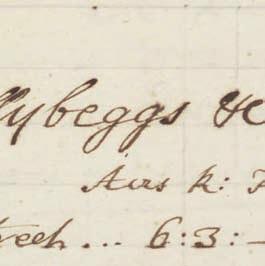 llybeggs &c
Acrs R: P
treet ... 6:3:-